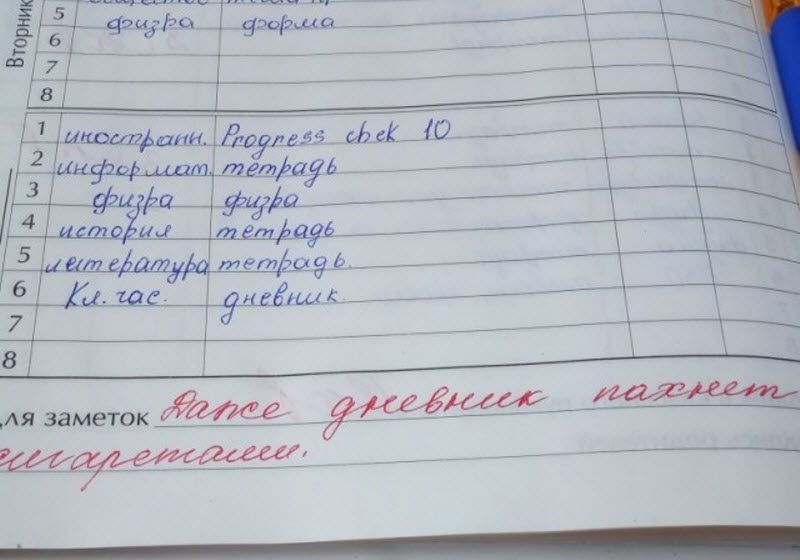 Вторник
5 физра форма
6
7
8
1 иностранн. Progress chek 10
2 информат. тетрадь
3 физра физра
4 история тетрадь
5 литература тетрадь.
6 Кл. час. дневник.
7
8
для заметок Даже дневник пахнет
сигаретами.